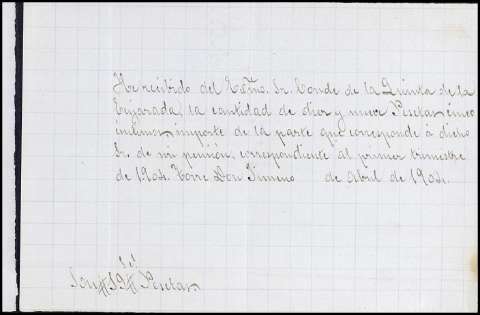 He recibido del Exmo. Sr. Conde de la Quinta de la
Enjarada, la cantidad de diez y nueve Pesetas cinco
centimos importe de la parte que corresponde á dicho
Sr. de mi pension, correspondiente al primer trimestre
de 1904. Torre Don Jimeno de Abril de 1904.
Son # 19 # Pesetas